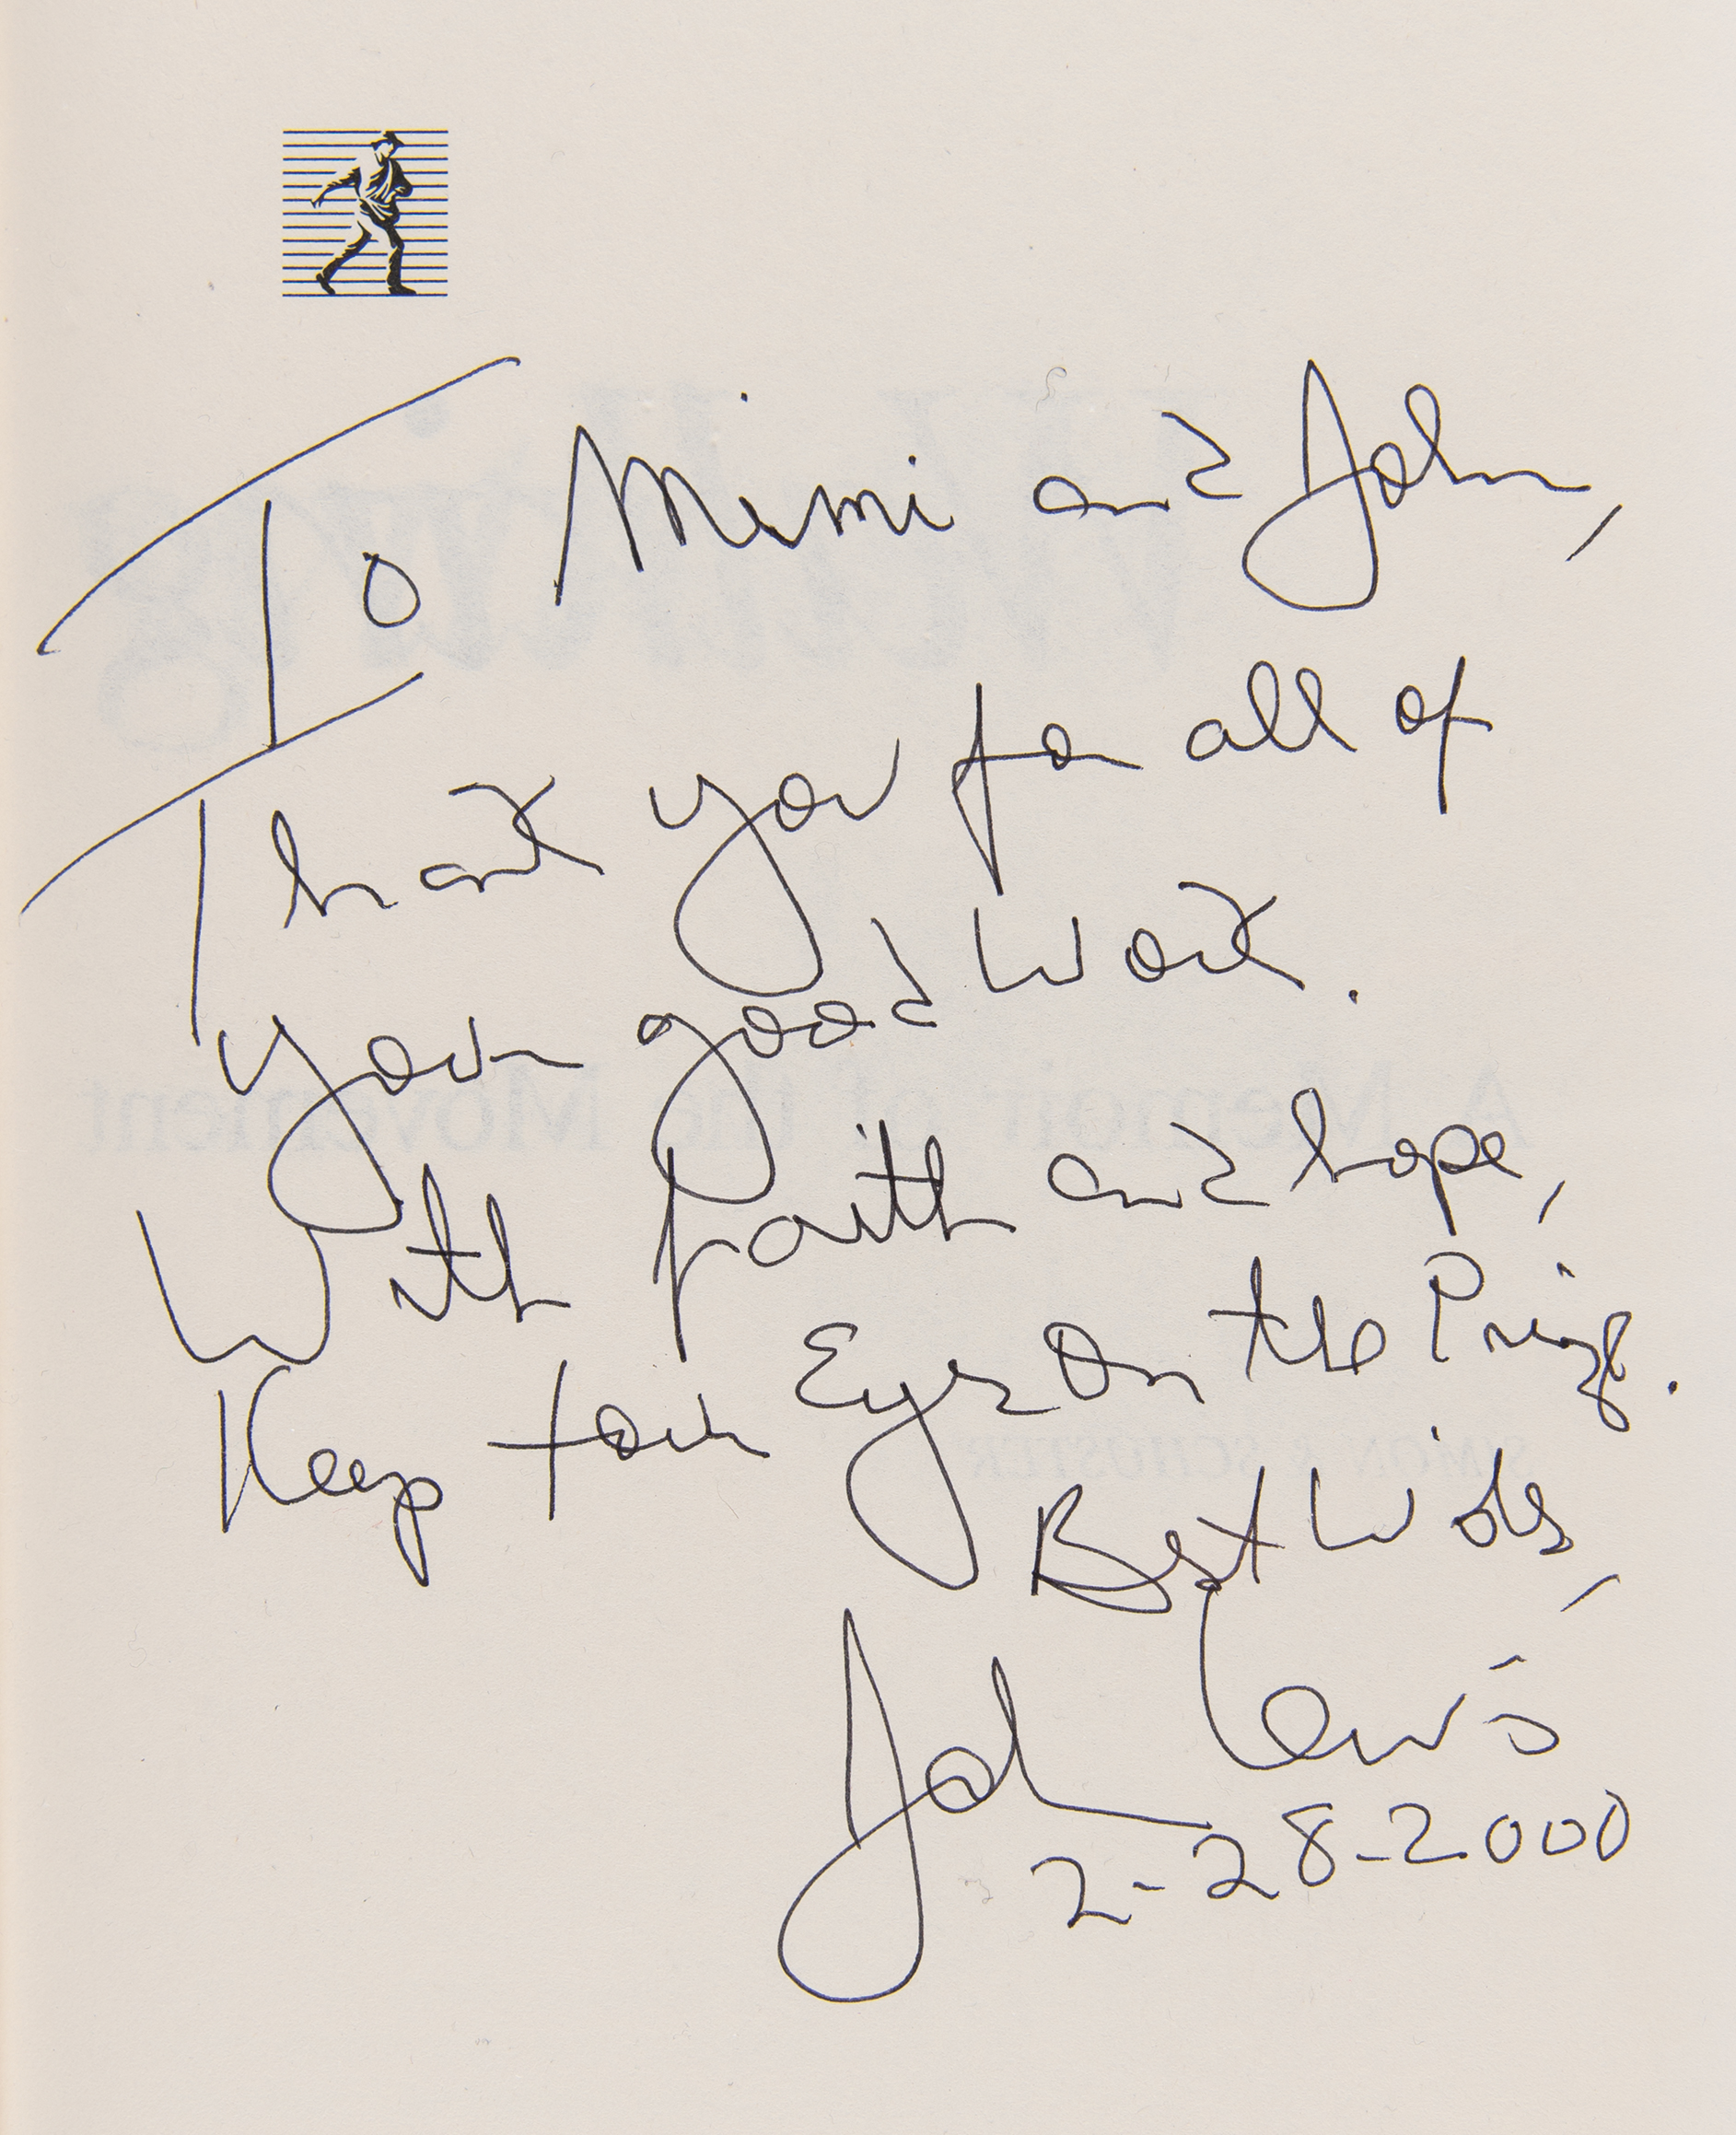 To Mimi and John,
Thank you for all of
your good work.
With faith and hope,
Keep your Eyes On the Prize.
Best Wishes,
John Lewis
2-28-2000
A Memoir of the Movement
SIMON & SCHUSTER